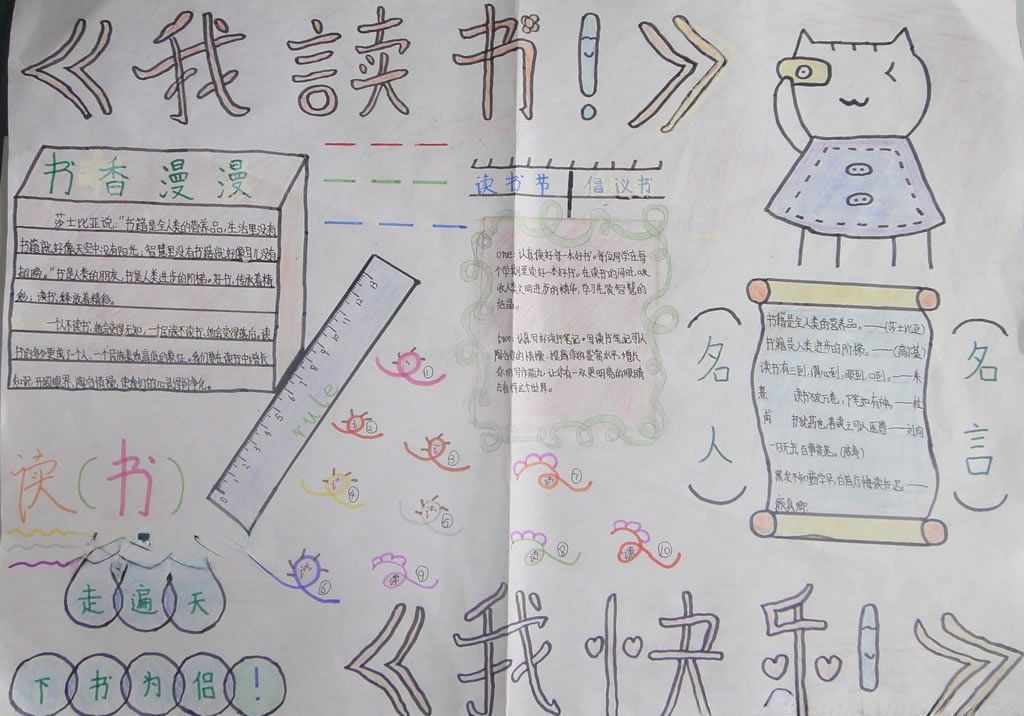 《我读书!》
书香漫漫
莎士比亚说:“书籍是全人类的营养品,生活里没有
书籍就好像天空中没有阳光,智慧里没有书籍就好像鸟儿没有
翅膀。”书是人类的朋友,书是人类进步的阶梯。好书,传成着精
彩;读书,释放着精彩。
一个人不读书,她会变得无知,一个民族不读书,她会变得落后,读
书的多少
一个民族
我们要在读书中增长
知识,开阔眼界,陶冶情操,使我们的心灵得到净化。
读书节 倡议书
one:认真读好每一本好书。每位同学在每
个学期里读好一本好书。在读书的同时,吸
收人类文明进步的精华,学习先贤智慧的
结晶。
two:认真写好读书笔记。写读书笔记可以
陶冶你的情操,提高你的鉴赏水平,增长
你的写作能力,让你有一双更明亮的眼睛
去看待这个世界。
rule
0 1 2 3 4 5 6 7 8 9 10 11 12 13
读(书)
走遍天
下书为侣!
①
②
③
④
⑤
⑥
读 ⑦
读 ⑧
读 ⑨
读 ⑩
(名人)
书籍是全人类的营养品。——(莎士比亚)
书籍是人类进步的阶梯。——(高尔基)
读书有三到,谓心到,眼到,口到。——朱
熹 读书破万卷,下笔如有神。——杜
甫 书犹药也,善读之可以医愚——刘向
一日无书,百事荒芜。(陈寿)
黑发不知勤学早,白首方悔读书迟。——
颜真卿
(名言)
《我快乐!》